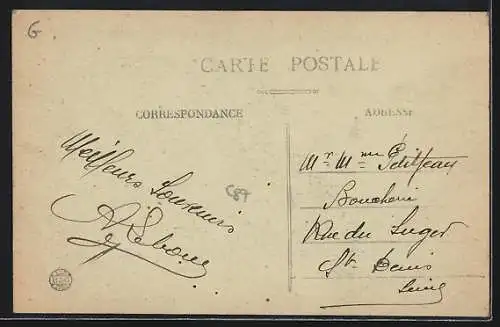 G
CARTE POSTALE
CORRESPONDANCE
ADRESSE
Meilleurs Souvenirs
C87
Mr. Mme Petitjean
Boucherie
Rue du Suger
St. Denis
Seine